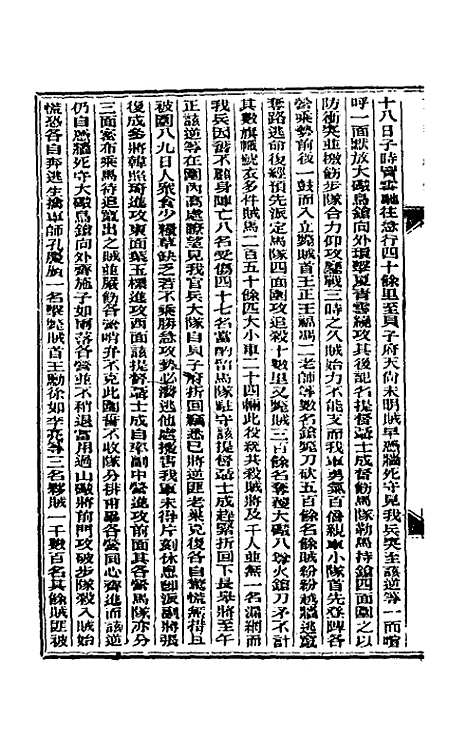 十八日子時冒雪馳往急行四十餘里至貝子府天尚未明賊早憑牆死守見我兵突至該逆等一面喧
呼一面默放大礮鳥鎗向外環擊夏青雲繞攻其後記名提督聶士成督飭馬隊勒馬持鎗四面圍之以
防衝突並撥飭步隊合力仰攻鏖戰三時之久賊始力不能支而我軍勇氣百倍親軍小隊首先登陴各
營乘勢前後一鼓而入立斃賊首王正王福馮二老師等數名鎗斃刀砍五百餘名餘賊紛紛越牆逃竄
奪路逃命復經預先派定馬隊四面圍攻追殺十數里又斃賊三百餘名奪獲大礮八尊火鎗刀矛不計
其數旗幟號衣多件賊馬二百五十餘匹大小車二十四輛此役統共殺賊將及千人並無一名漏網而
我兵因奮不顧身陣亡八名受傷四十七名當酌留馬隊駐守該提督聶士成趕緊折回下長皋將至午
正該逆等在圍內高處瞭望見我官兵大隊自貝子府折回竊悉已將逆匪老巢克復各自驚慌無措且
被圍八九日人眾食少糧草缺乏若不乘勝急攻勢必潛逃他處擾害我軍未得片刻休息即派副將張
復成多將韓照琦進攻東面葉玉標進攻西面該提督聶士成自率副中營進攻前面其各營馬隊亦分
三面密布乘馬待追竄出之賊並嚴飭各營哨弁不克此圍誓不收隊分排甫畢各營同心齊進而該逆
仍自憑牆死守大礮鳥鎗向外齊施子如雨落各營並不稍退當用過山礮將前門攻破步隊殺入賊始
慌恐各自奔逃生擒軍師孔慶廣一名擊斃賊首王勳徐如李存等三名夥賊一千數百名其餘賊匪被